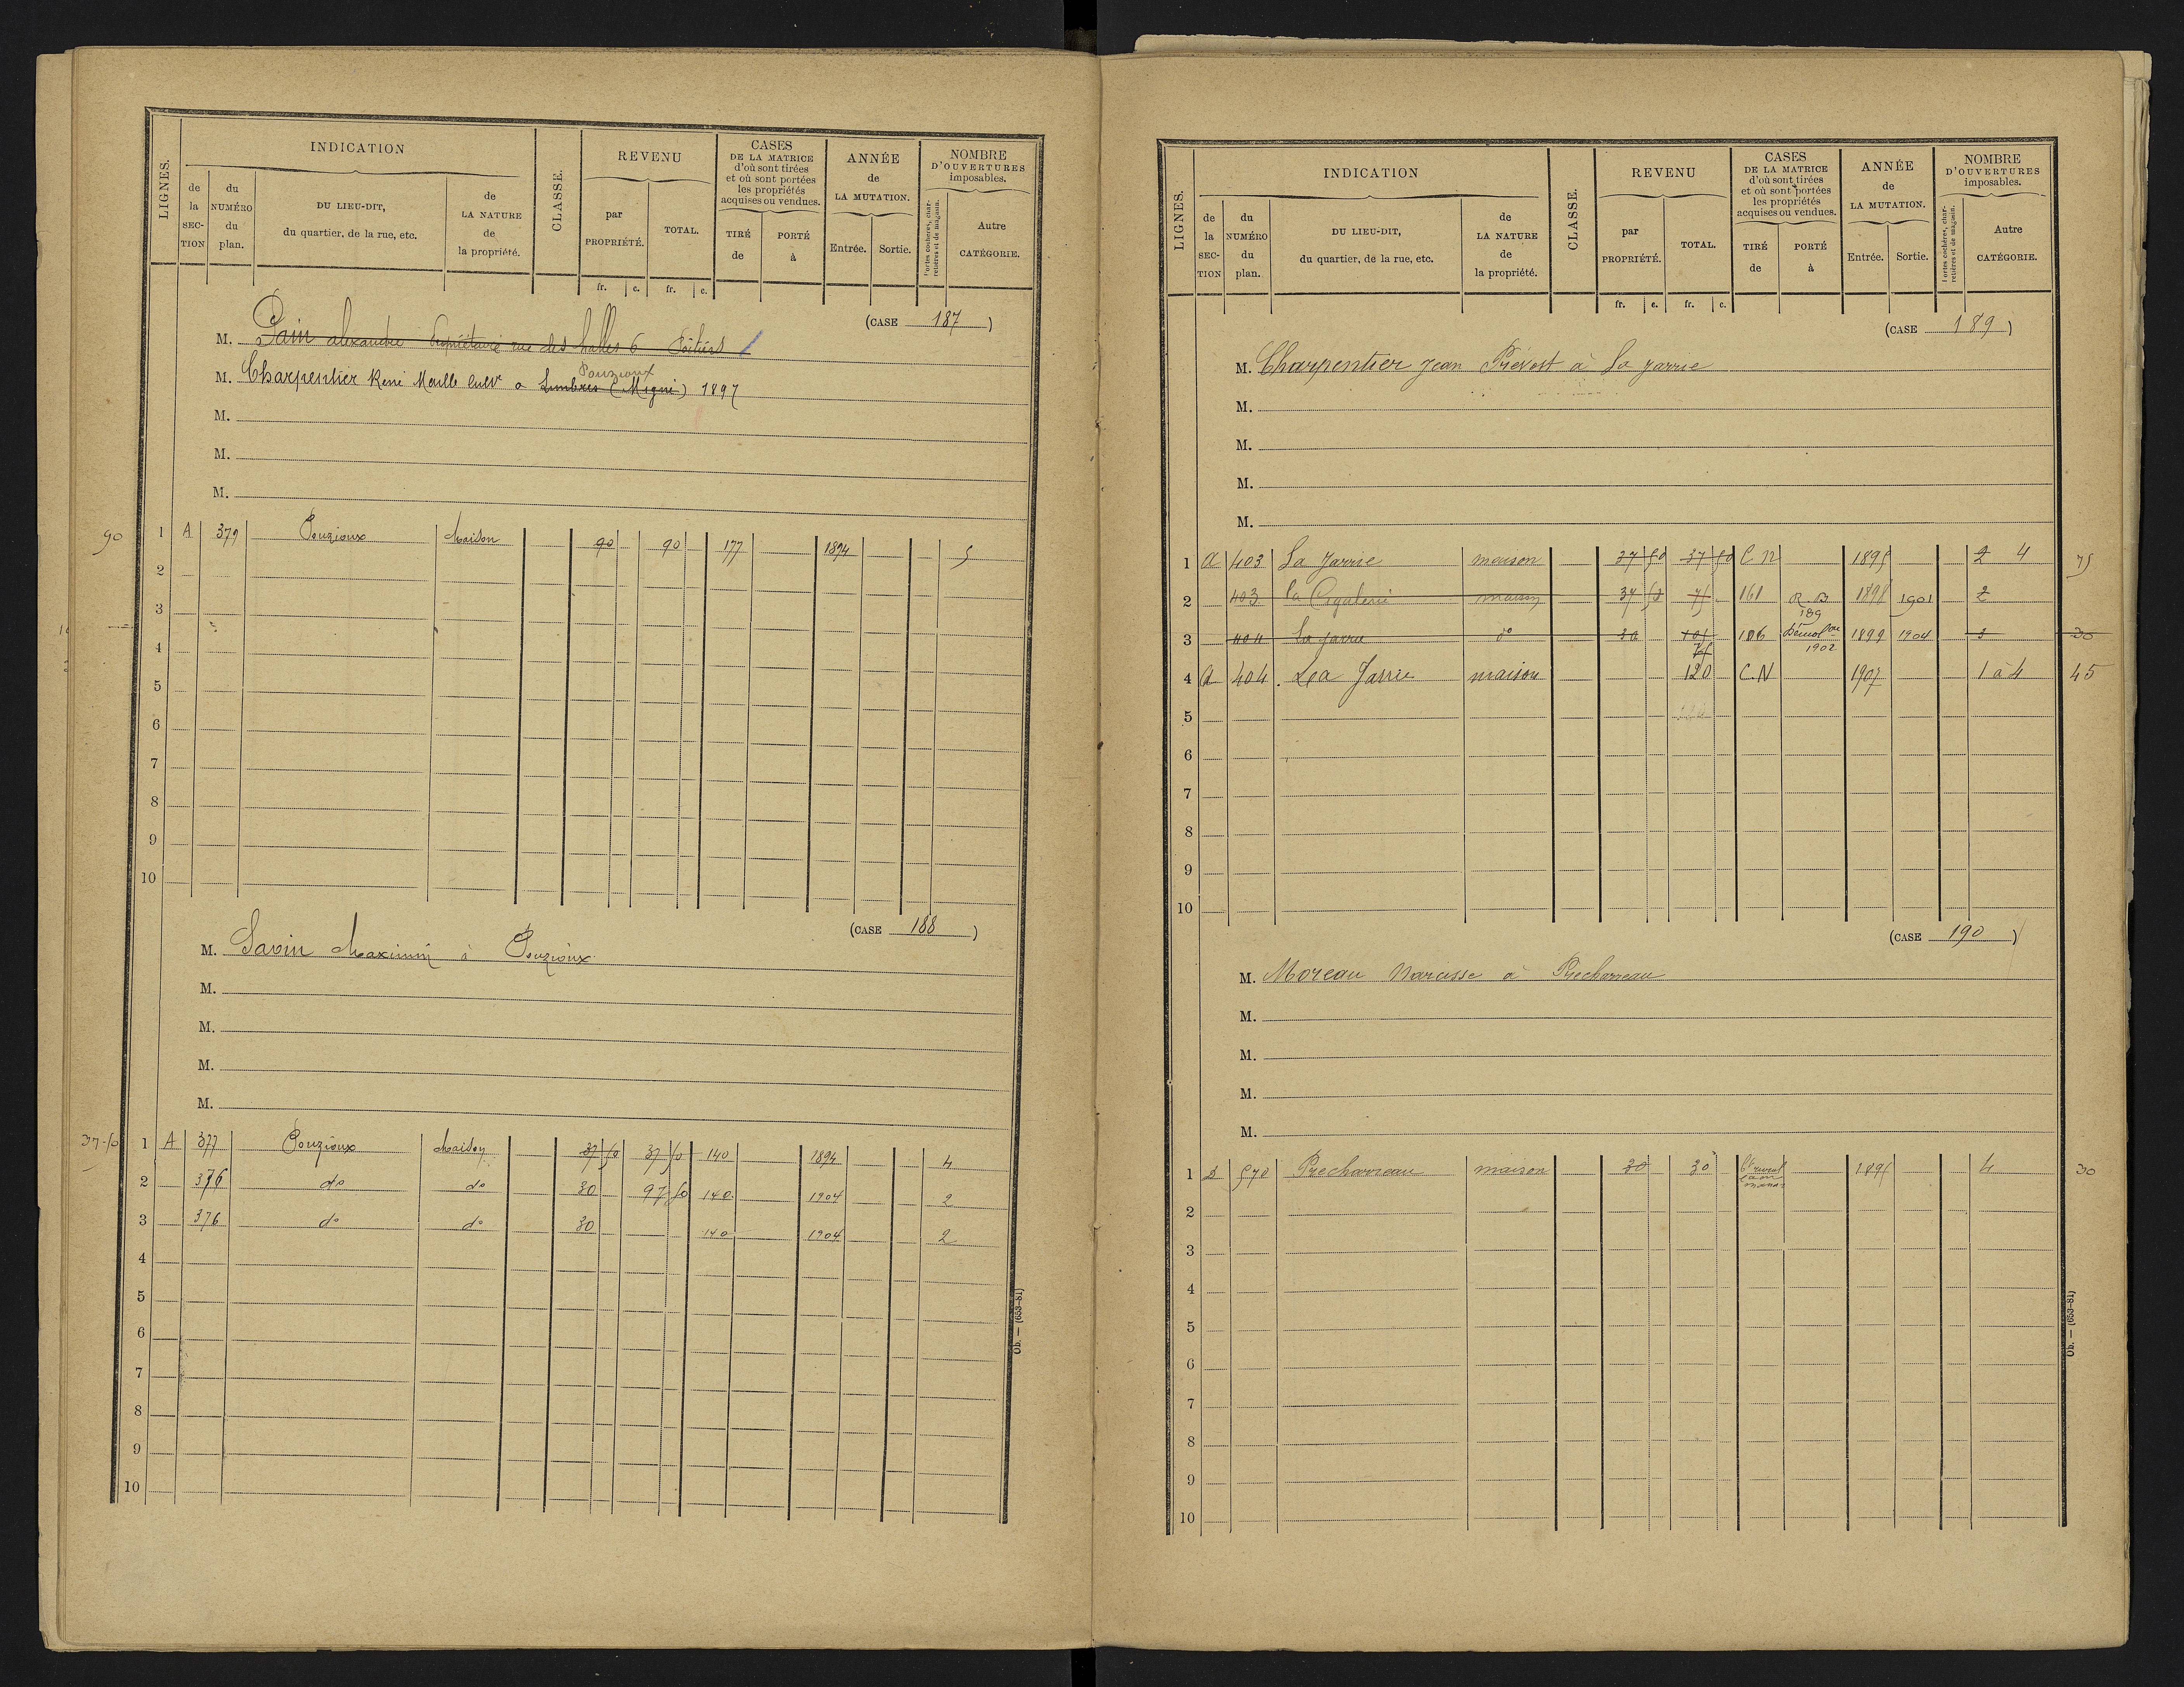 LIGNES.
INDICATION
de la SECTION
du NUMÉRO du plan.
DU LIEU-DIT, du quartier, de la rue, etc.
de LA NATURE de la propriété.
CLASSE.
REVENU
par PROPRIÉTÉ.
TOTAL.
CASES DE LA MATRICE d'où sont tirées et où sont portées les propriétés acquises ou vendues.
TIRÉ de
PORTÉ à
ANNÉE de LA MUTATION.
Entrée.
Sortie.
NOMBRE D'OUVERTURES imposables.
Portes cochères, charretières et de magasin.
Autre CATÉGORIE.
fr. c. fr. c.
(CASE 187)
M. Pain alexandre Propriétaire rue des halles 6 Poitiers
Pouzioux
M. Charpentier René cultr a Limbres (Migné) 1897
M.
M.
M.
90 1 A 379 Pouzioux Maison 90 90 177 1894 5
2
3
4
5
6
7
8
9
10
(CASE 188)
M. Savin Maximin à Pouzioux
M.
M.
M.
M.
37-50 1 A 377 Pouzioux Maison 37 50 37 50 140 1894 4
2 376 do do 30 97 50 140 1904 2
3 376 do do 30 140 1904 2
4
5
6
7
8
9
10
Ob. — (653-81)
LIGNES.
INDICATION
de la SECTION
du NUMÉRO du plan.
DU LIEU-DIT, du quartier, de la rue, etc.
de LA NATURE de la propriété.
CLASSE.
REVENU
par PROPRIÉTÉ.
TOTAL.
CASES DE LA MATRICE d'où sont tirées et où sont portées les propriétés acquises ou vendues.
TIRÉ de
PORTÉ à
ANNÉE de LA MUTATION.
Entrée.
Sortie.
NOMBRE D'OUVERTURES imposables.
Portes cochères, charretières et de magasin.
Autre CATÉGORIE.
fr. c. fr. c.
(CASE 189)
M. Charpentier Jean Prévost à La Jarrie
M.
M.
M.
M.
1 A 403 La Jarrie maison 37 50 37 50 C N 1895 2 4 75
2 403 la maison 37 50 75 161 R.B 189 1898 1901 2
3 404 La Jarrie do 30 105 186 Démolon 1902 1899 1904 3 30
75
4 A 404 La Jarrie maison 120 C.N 1907 1 à 4 45
5
6
7
8
9
10
(CASE 190)
M. Moreau Narcisse à Precharreau
M.
M.
M.
M.
1 D 570 Precharreau maison 30 30 1895 4 30
2
3
4
5
6
7
8
9
10
Ob. — (653-81)